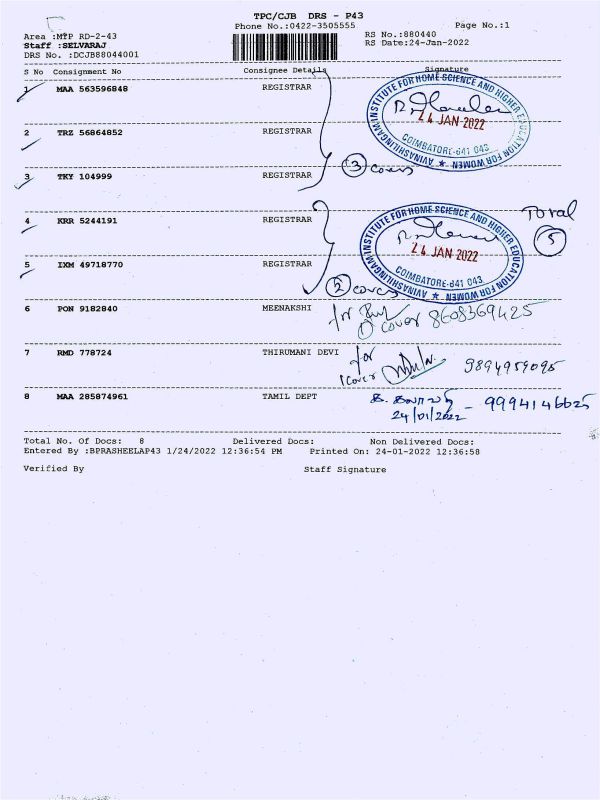 TPC/CJB DRS - P43
Phone No.:0422-3505555
Page No.:1
Area :MTP RD-2-43
Staff :SELVARAJ
DRS No. :DCJB88044001
RS No.:880440
RS Date:24-Jan-2022
S No Consignment No Consignee Details Signature
1 MAA 563596848 REGISTRAR
AVINASHILINGAM INSTITUTE FOR HOME SCIENCE AND HIGHER EDUCATION FOR WOMEN
24 JAN 2022
COIMBATORE-641 043
2 TRZ 56864852 REGISTRAR
3 TKY 104999 REGISTRAR
3 covers
4 KRR 5244191 REGISTRAR
AVINASHILINGAM INSTITUTE FOR HOME SCIENCE AND HIGHER EDUCATION FOR WOMEN
24 JAN 2022
COIMBATORE-641 043
Total
5
5 IXM 49718770 REGISTRAR
2 covers
6 PON 9182840 MEENAKSHI
for
1 cover 8608369425
7 RMD 778724 THIRUMANI DEVI
for
1 cover 9894959095
8 MAA 285874961 TAMIL DEPT
24/01/2022 - 9994146625
Total No. Of Docs: 8 Delivered Docs: Non Delivered Docs:
Entered By :BPRASHEELAP43 1/24/2022 12:36:54 PM Printed On: 24-01-2022 12:36:58
Verified By Staff Signature